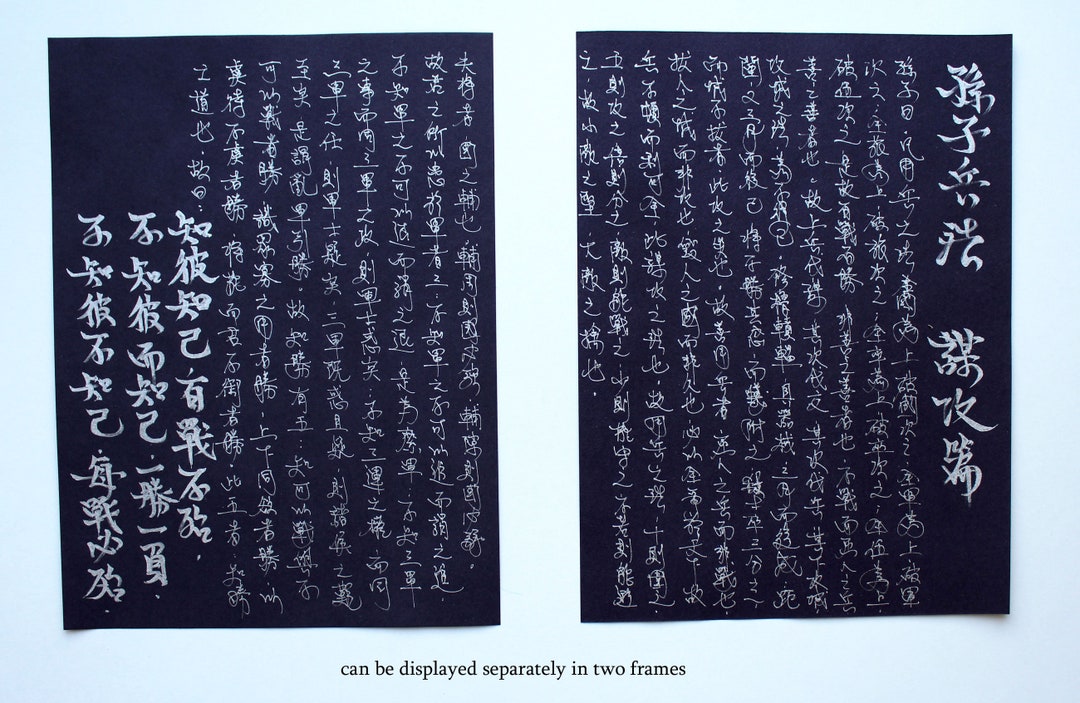 孫子兵法 謀攻篇
孫子曰．凡用兵之法．全國為上．破國次之．全軍為上．破軍
次之．全旅為上．破旅次之．全卒為上．破卒次之．全伍為上
破伍次之．是故百戰百勝．非善之善者也．不戰而屈人之兵
善之善者也．故上兵伐謀．其次伐交．其次伐兵．其下攻城
攻城之法．為不得已．修櫓轒轀．具器械．三月而後成．距
闉．又三月而後已．將不勝其忿．而蟻附之．殺士卒三分之一
而城不拔者．此攻之災也．故善用兵者．屈人之兵而非戰也
拔人之城而非攻也．毀人之國而非久也．必以全爭於天下．故
兵不頓而利可全．此謀攻之法也．故用兵之法．十則圍之
五則攻之．倍則分之．敵則能戰之．少則能守之．不若則能避
之．故小敵之堅．大敵之擒也．
夫將者．國之輔也．輔周則國必強．輔隙則國必弱．
故君之所以患於軍者三．不知軍之不可以進而謂之進．
不知軍之不可以退而謂之退．是為縻軍．不知三軍
之事而同三軍之政．則軍士惑矣．不知三軍之權．而同
三軍之任．則軍士疑矣．三軍既惑且疑．則諸侯之難
至矣．是謂亂軍引勝．故知勝有五．知可以戰與不
可以戰者勝．識眾寡之用者勝．上下同欲者勝．以
虞待不虞者勝．將能而君不御者勝．此五者．知勝
之道也．故曰．
知彼知己．百戰不殆．
不知彼而知己．一勝一負．
不知彼不知己．每戰必殆．
can be displayed separately in two frames